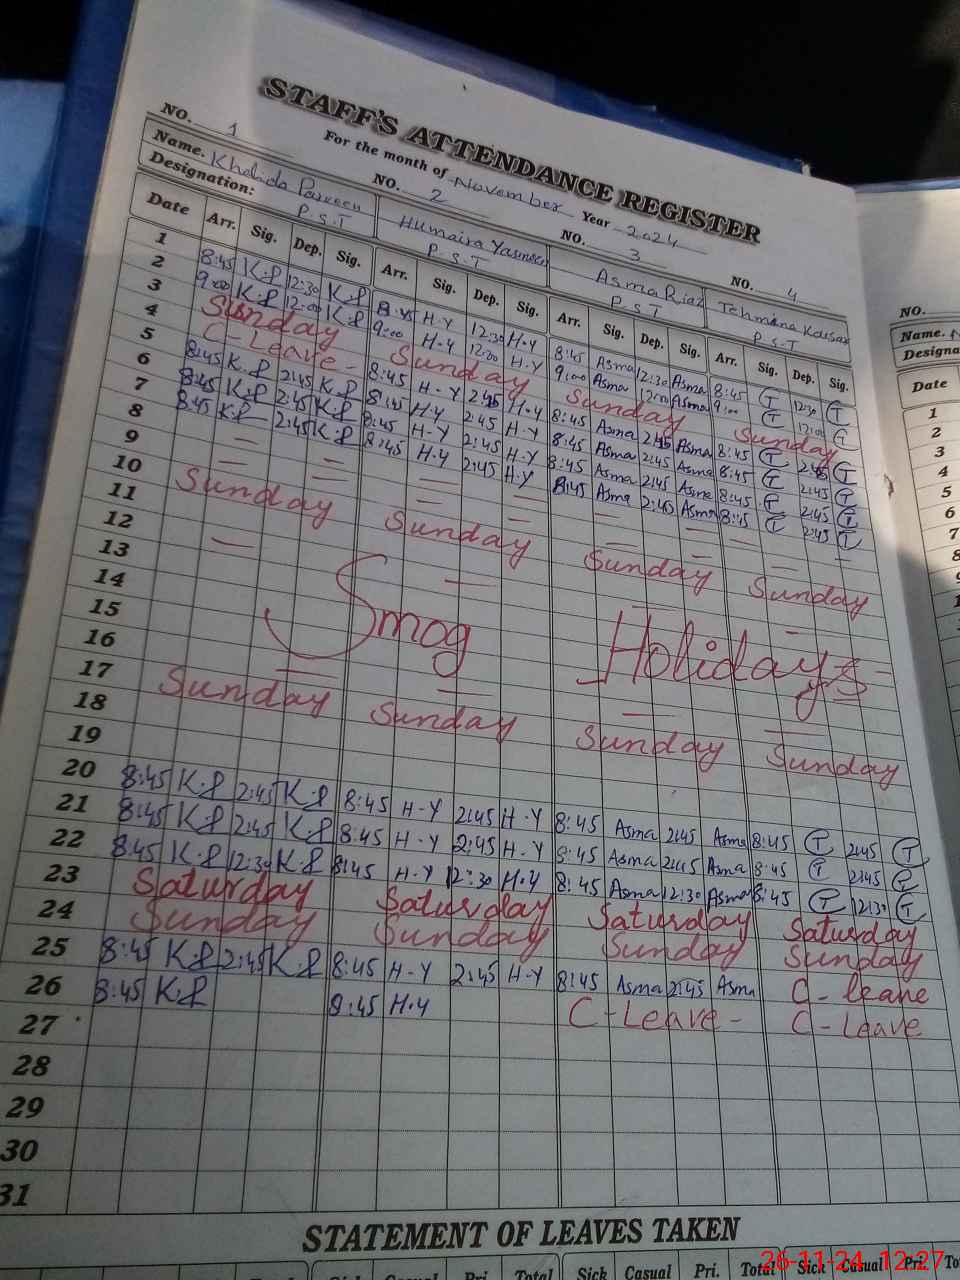 STAFF'S ATTENDANCE REGISTER
For the month of November Year 2024
NO. 1 NO. 2 NO. 3 NO. 4
Name. Khalida Parveen Humaira Yasmeen Asma Riaz Tehmina Kousar
Designation: P.S.T P.S.T P.S.T P.S.T
Date Arr. Sig. Dep. Sig. Arr. Sig. Dep. Sig. Arr. Sig. Dep. Sig. Arr. Sig. Dep. Sig.
1 8:45 K.P 12:30 K.P 8:45 H-Y 12:30 H-Y 8:45 Asma 12:30 Asma 8:45 T 12:30 T
2 9:00 K.P 12:00 K.P 9:00 H-Y 12:00 H-Y 9:00 Asma 12:00 Asma 9:00 T 12:00 T
3 Sunday Sunday Sunday Sunday
4 C-Leave- 8:45 H-Y 2:45 H-Y 8:45 Asma 2:45 Asma 8:45 T 2:45 T
5 8:45 K.P 2:45 K.P 8:45 H-Y 2:45 H-Y 8:45 Asma 2:45 Asma 8:45 T 2:45 T
6 8:45 K.P 2:45 K.P 8:45 H-Y 2:45 H-Y 8:45 Asma 2:45 Asma 8:45 T 2:45 T
7 8:45 K.P 2:45 K.P 8:45 H-Y 2:45 H-Y 8:45 Asma 2:45 Asma 8:45 T 2:45 T
8
9
10 Sunday Sunday Sunday Sunday
11
12
13
14 Smog Holidays
15
16
17 Sunday Sunday Sunday Sunday
18
19
20 8:45 K.P 2:45 K.P 8:45 H-Y 2:45 H-Y 8:45 Asma 2:45 Asma 8:45 T 2:45 T
21 8:45 K.P 2:45 K.P 8:45 H-Y 2:45 H-Y 8:45 Asma 2:45 Asma 8:45 T 2:45 T
22 8:45 K.P 12:30 K.P 8:45 H-Y 12:30 H-Y 8:45 Asma 12:30 Asma 8:45 T 12:30 T
23 Saturday Saturday Saturday Saturday
24 Sunday Sunday Sunday Sunday
25 8:45 K.P 2:45 K.P 8:45 H-Y 2:45 H-Y 8:45 Asma 2:45 Asma C-leave
26 8:45 K.P 8:45 H-Y C-Leave- C-leave
27
28
29
30
31
STATEMENT OF LEAVES TAKEN
Sick Casual Pri. Total Sick Casual Pri. Total Sick Casual Pri.
NO.
Name.
Designa
Date
1
2
3
4
5
6
7
8
9
26-11-24 12:27